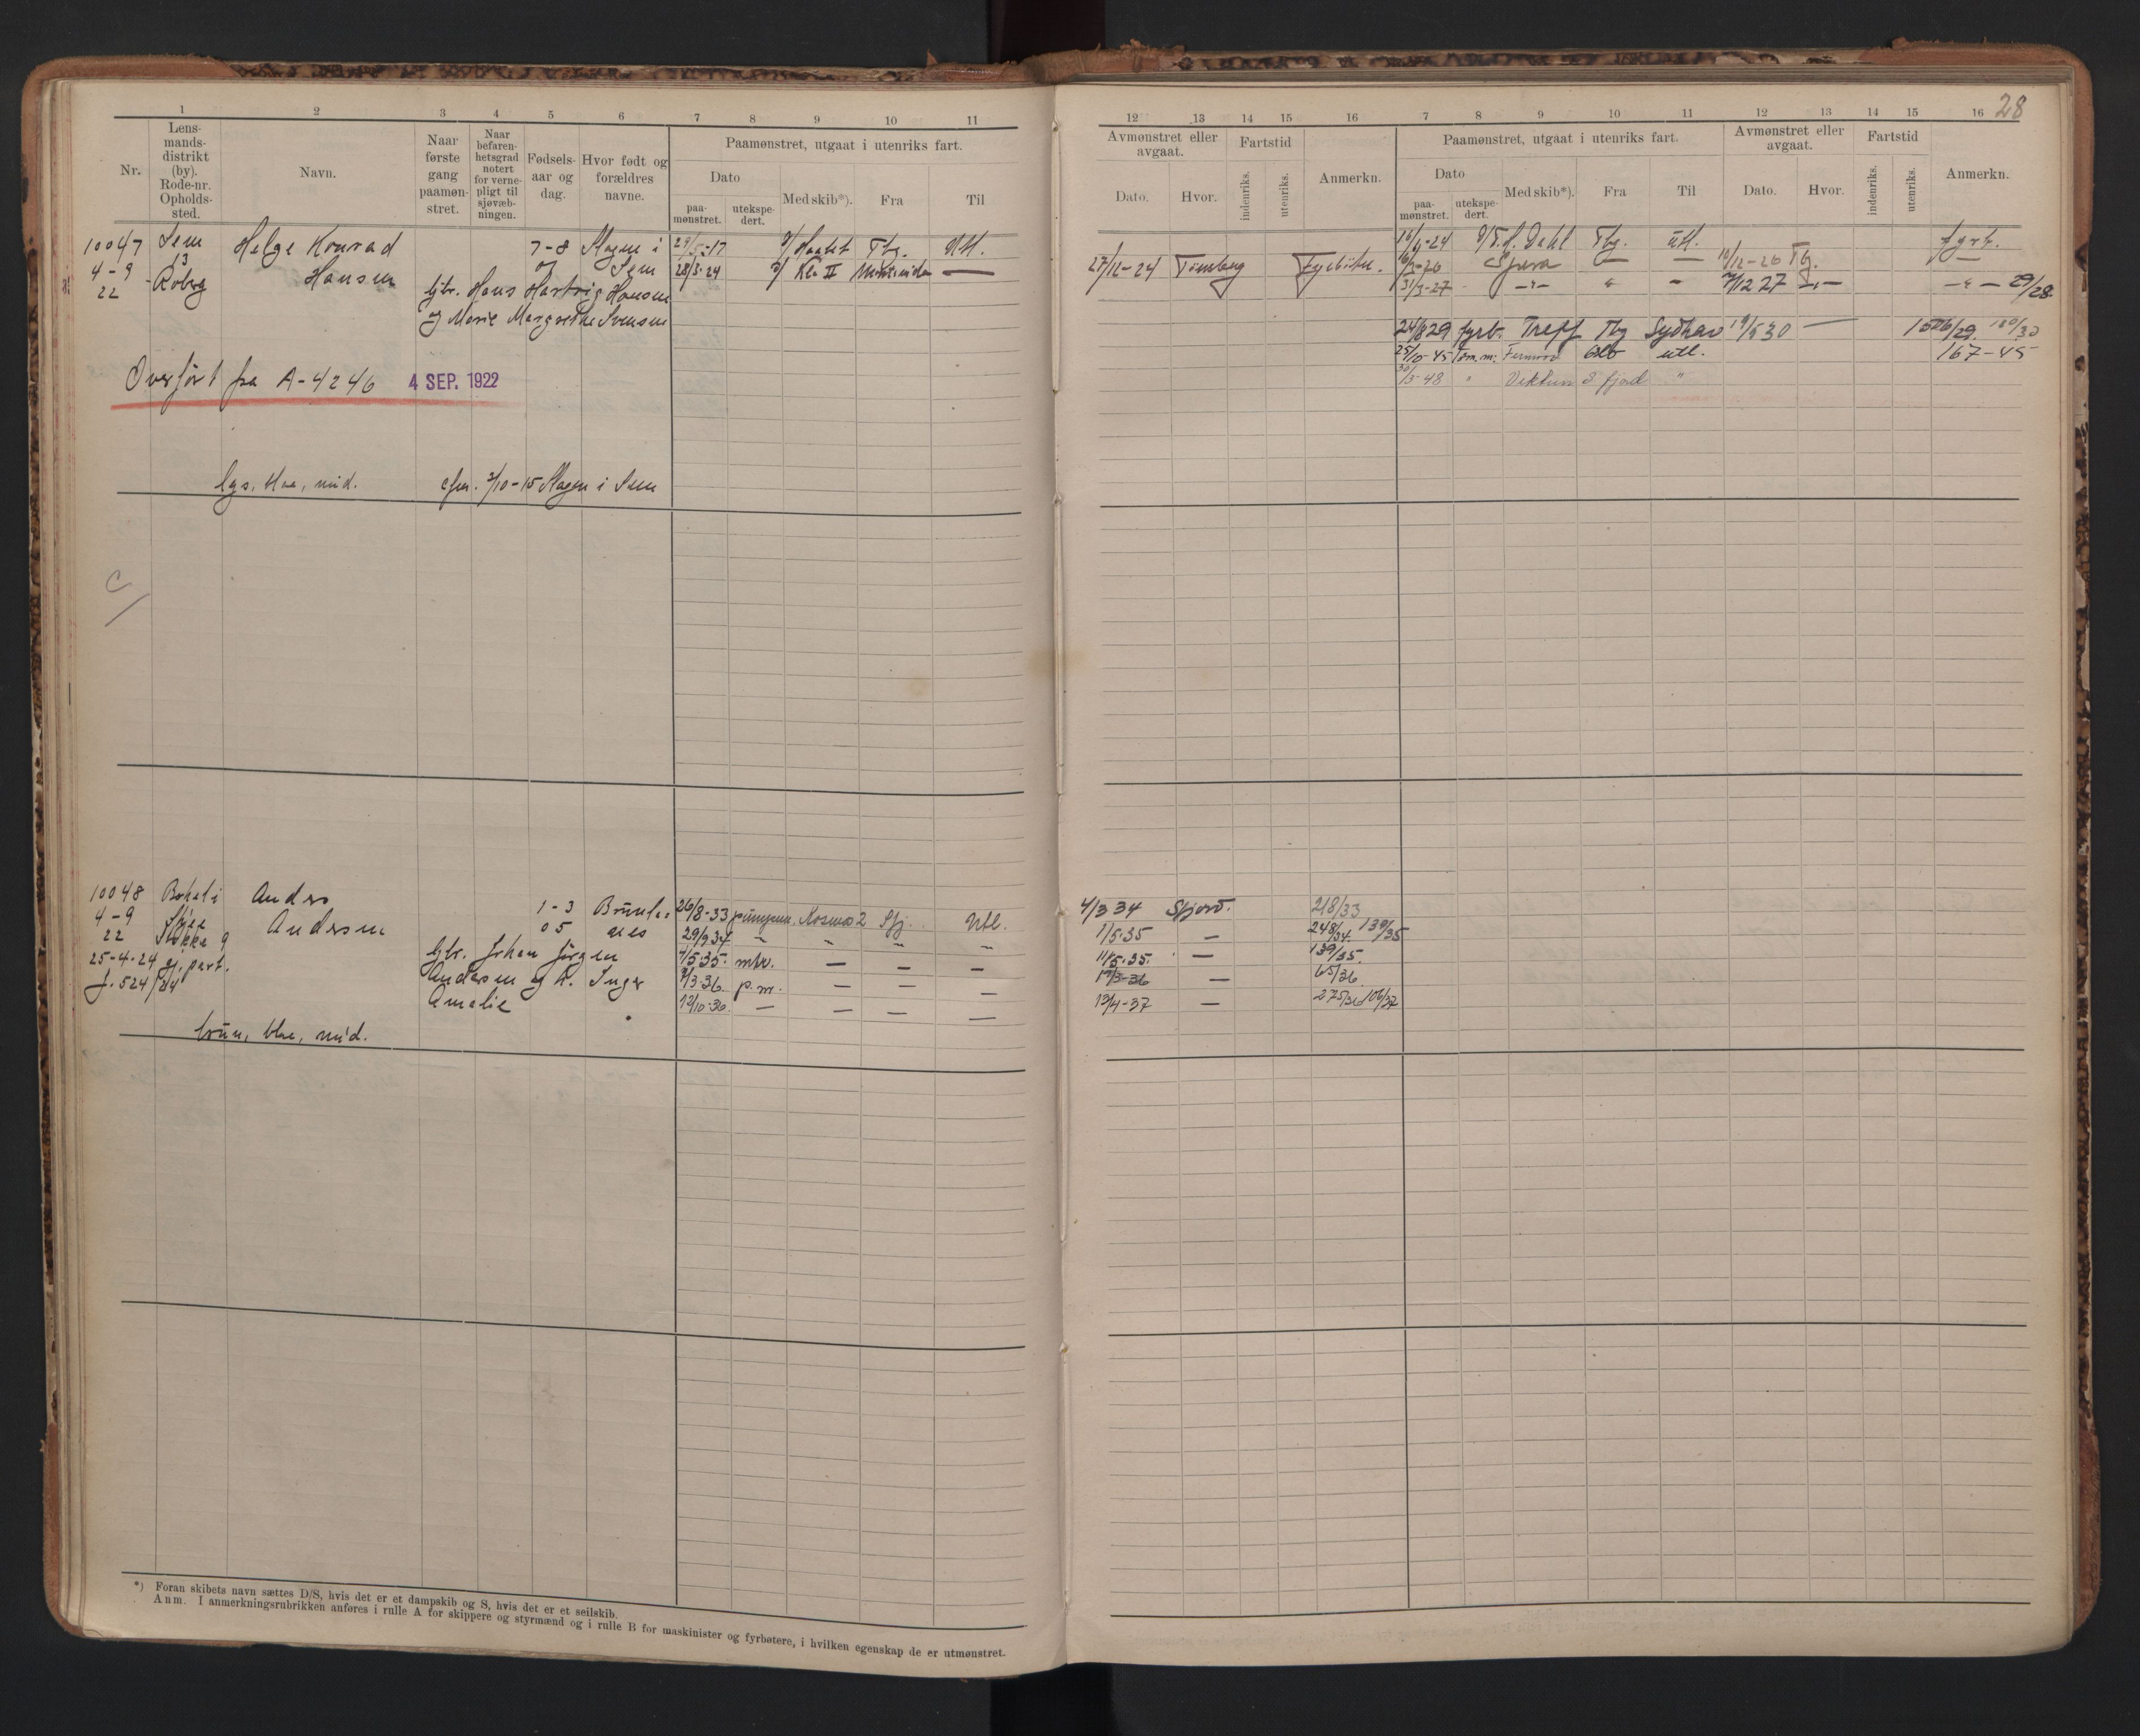 28
1 2 3 4 5 6 7 8 9 10 11
Nr.
Lens-
mands-
distrikt
(by).
Rode-nr.
Opholds-
sted.
Navn.
Naar
første
gang
paamøn-
stret.
Naar
befaren-
hetsgrad
notert
for verne-
pligt til
sjøvæb-
ningen.
Fødsels-
aar og
dag.
Hvor født og
forældres
navne.
Paamønstret, utgaat i utenriks fart.
Dato
paa-
mønstret.
utekspe-
dert.
Med skib*).
Fra
Til
10047 Sem Helge Konrad 7-8 Slagen i
4-9 13 Hansen Sem
22 Roberg
hjtr. Hans Hartvig Hansen
og Marie Margrethe Svensen
29/5-17 Tbg. Utl.
28/3-24 Kla II —
Overført fra A-4246 4 SEP. 1922
lys, blaa, mid. 2/10-15 Slagen i Sem
10048 Anders 1-3
4-9 Andersen 05
22 Stokke 9
25-4-24 part.
J. 524/24
hjtr. Johan Jörgen
Andersen og h. Inger
Amalie
26/8-33 Kosmos 2 Sfj. Utl.
29/9 34 — — — —
4/5 35. mtr. — — —
9/3-36. p.m. — — —
12/10-36. — — — —
brun, blaa, mid.
*) Foran skibets navn sættes D/S, hvis det er et dampskib og S, hvis det er et seilskib.
Anm. I anmerkningsrubrikken anføres i rulle A for skippere og styrmænd og i rulle B for maskinister og fyrbøtere, i hvilken egenskap de er utmønstret.
12 13 14 15 16 7 8 9 10 11 12 13 14 15 16
Avmønstret eller
avgaat.
Dato.
Hvor.
Fartstid
indenriks.
utenriks.
Anmerkn.
Paamønstret, utgaat i utenriks fart.
Dato
paa-
mønstret.
utekspe-
dert.
Med skib*).
Fra
Til
Avmønstret eller
avgaat.
Dato.
Hvor.
Fartstid
indenriks.
utenriks.
Anmerkn.
27/12-24 Tønsberg Fyrbøter.
16/9-24 Dahl Tbg. Utl. fyrb.
— — 10/12-26 Tbg. —
31/3-27 —"— " — 7/12 27 —"— —"— 29/28.
24/8 29 fyrb. Treff Tbg Sydhav 19/5 30 —
25/10-45 utl. 167-45
30/3-48 " fjord "
4/3 34 Sfjord. 218/33
1/5-35 — 248/34. 139/35
11/5-35. — 139/35.
17/3-36 — 65/36
13/4-37 — 275/36 106/37